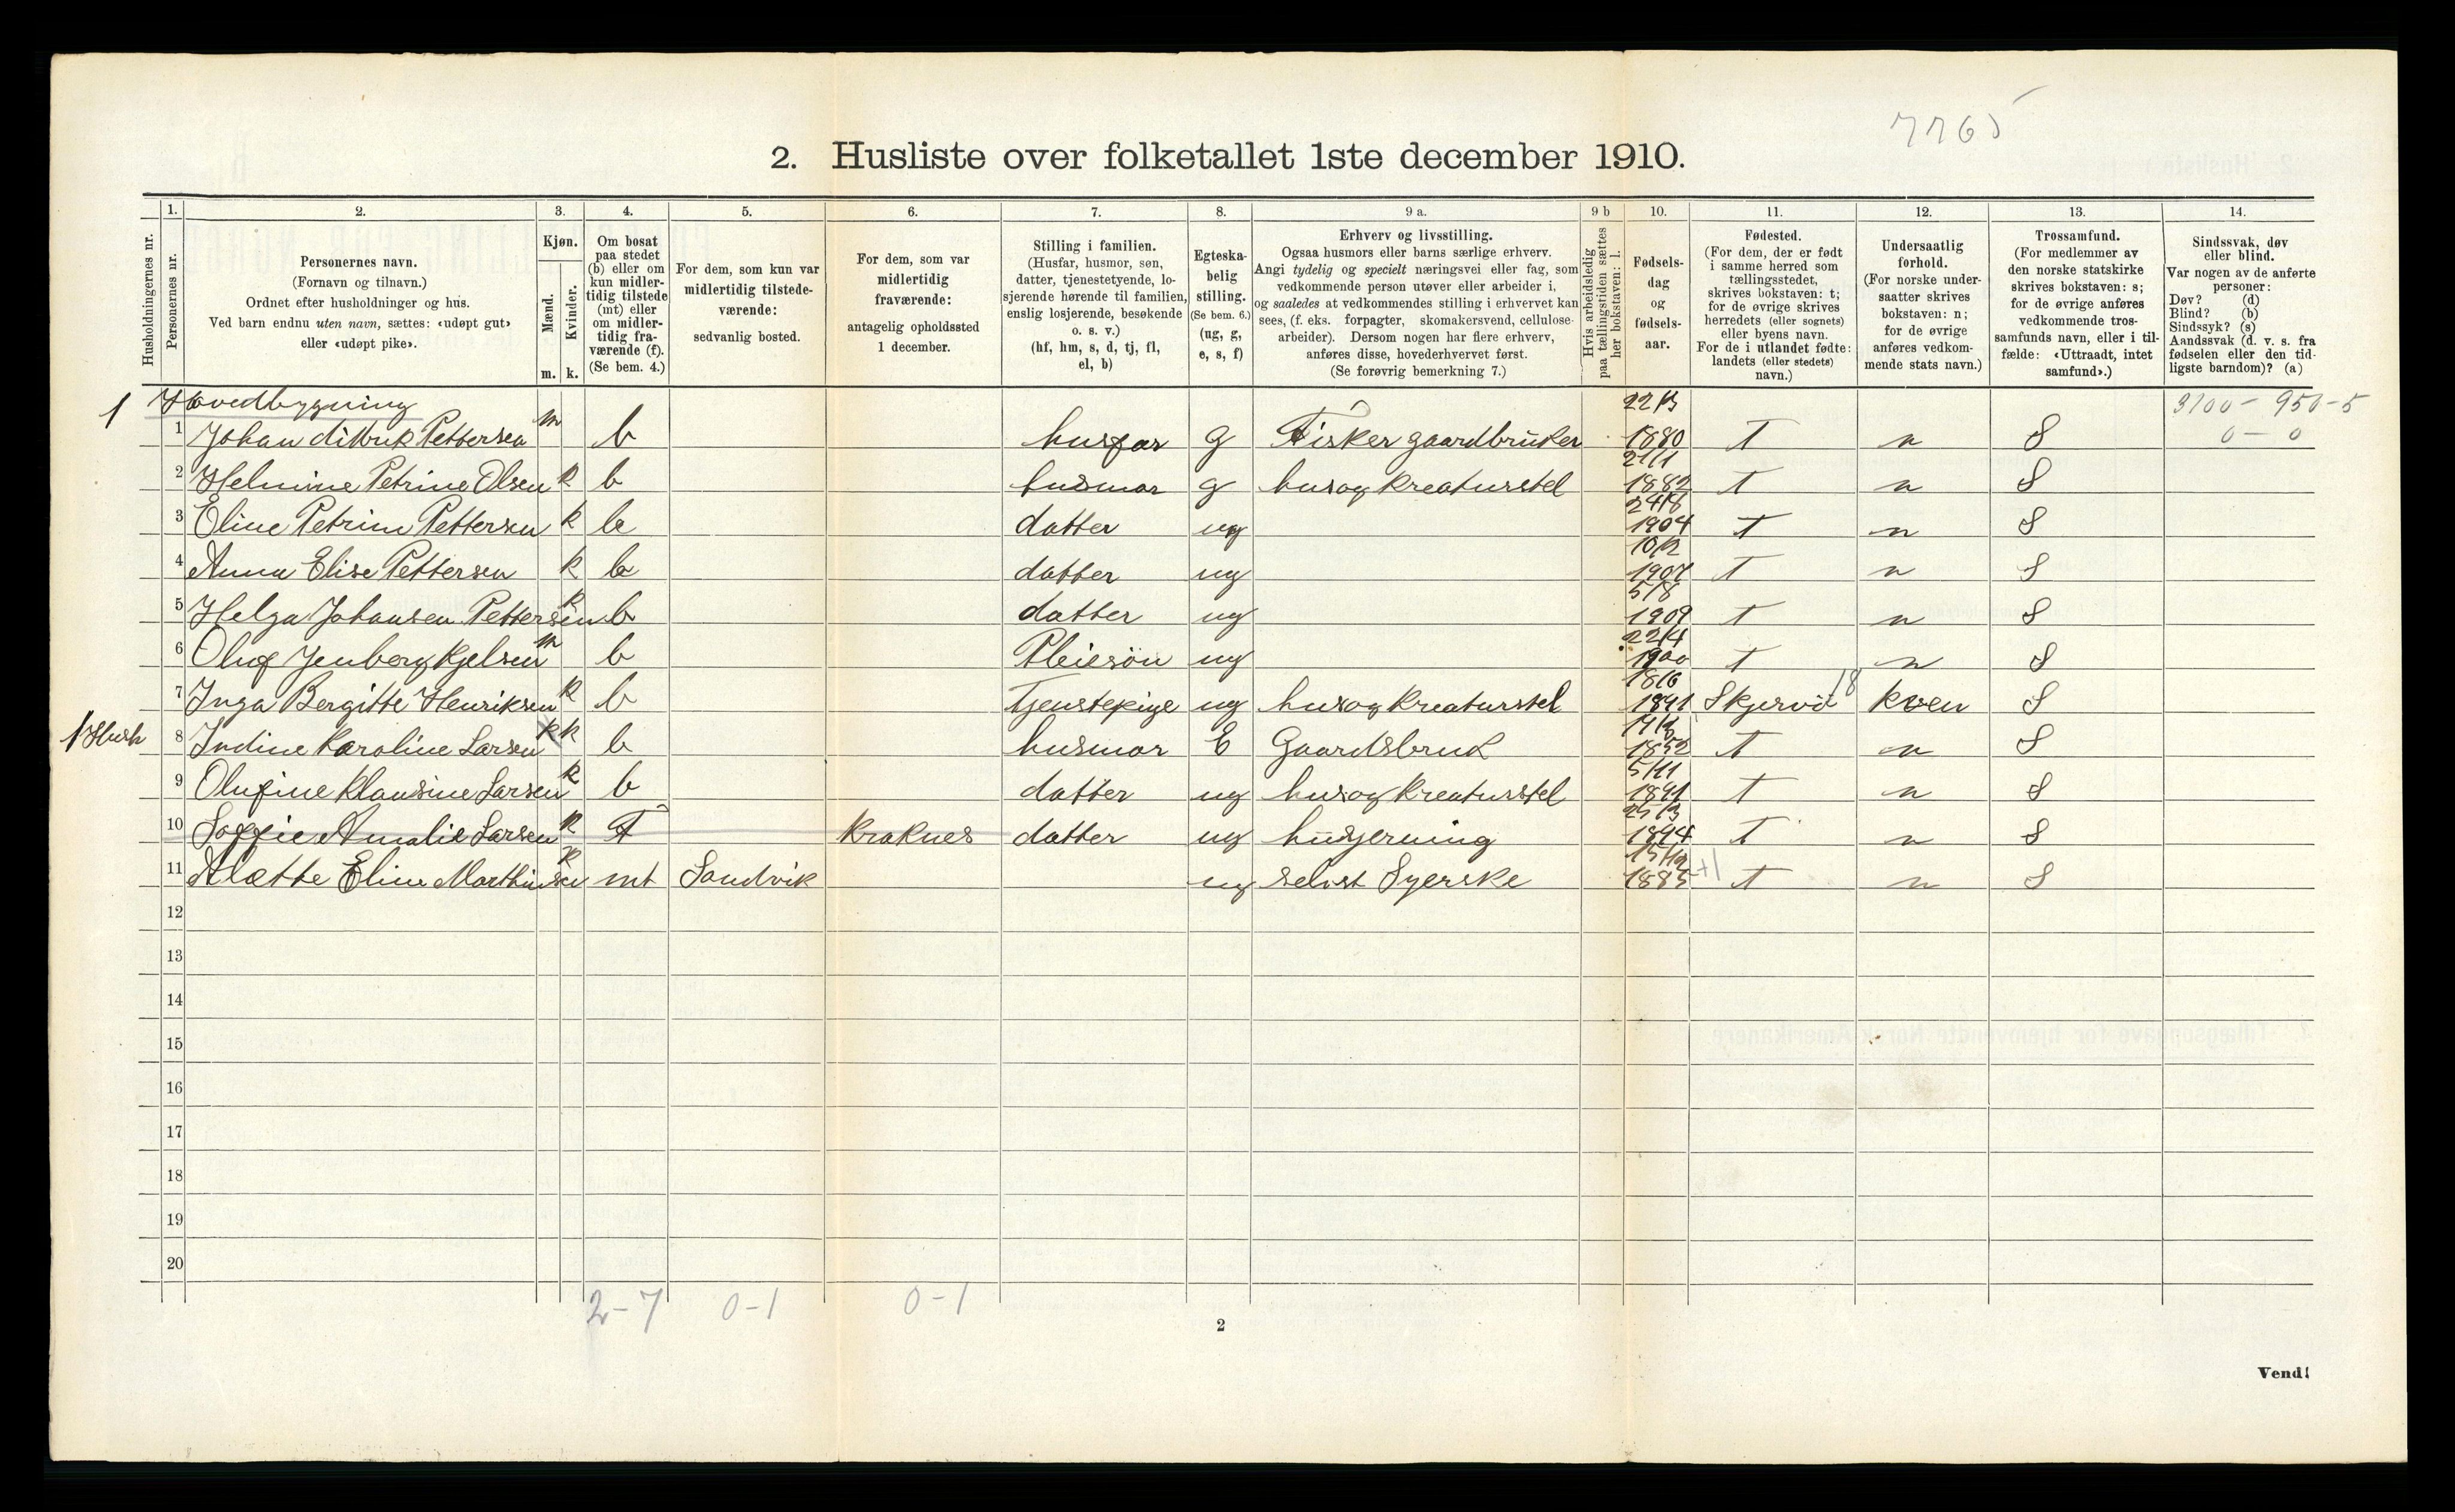 7765
2. Husliste over folketallet 1ste december 1910.
Husholdningernes nr.
1. Personernes nr.
2. Personernes navn.
(Fornavn og tilnavn.)
Ordnet efter husholdninger og hus.
Ved barn endnu uten navn, sættes: «udøpt gut»
eller «udøpt pike».
3. Kjøn.
Mænd. m.
Kvinder. k.
4. Om bosat
paa stedet
(b) eller om
kun midler-
tidig tilstede
(mt) eller
om midler-
tidig fra-
værende (f).
(Se bem. 4.)
5. For dem, som kun var
midlertidig tilstede-
værende:
sedvanlig bosted.
6. For dem, som var
midlertidig
fraværende:
antagelig opholdssted
1 december.
7. Stilling i familien.
(Husfar, husmor, søn,
datter, tjenestetyende, lo-
sjerende hørende til familien,
enslig losjerende, besøkende
o. s. v.)
(hf, hm, s, d, tj, fl,
el, b)
8. Egteska-
belig
stilling.
(Se bem. 6.)
(ug, g,
e, s, f)
9 a. Erhverv og livsstilling.
Ogsaa husmors eller barns særlige erhverv.
Angi tydelig og specielt næringsvei eller fag, som
vedkommende person utøver eller arbeider i,
og saaledes at vedkommendes stilling i erhvervet kan
sees, (f. eks. forpagter, skomakersvend, cellulose-
arbeider). Dersom nogen har flere erhverv,
anføres disse, hovederhvervet først.
(Se forøvrig bemerkning 7.)
9 b Hvis arbeidsledig
paa tællingstiden sættes
her bokstaven: l.
10. Fødsels-
dag
og
fødsels-
aar.
11. Fødested.
(For dem, der er født
i samme herred som
tællingsstedet,
skrives bokstaven: t;
for de øvrige skrives
herredets (eller sognets)
eller byens navn.
For de i utlandet fødte:
landets (eller stedets)
navn.)
12. Undersaatlig
forhold.
(For norske under-
saatter skrives
bokstaven: n;
for de øvrige
anføres vedkom-
mende stats navn.)
13. Trossamfund.
(For medlemmer av
den norske statskirke
skrives bokstaven: s;
for de øvrige anføres
vedkommende tros-
samfunds navn, eller i til-
fælde: «Uttraadt, intet
samfund».)
14. Sindssvak, døv
eller blind.
Var nogen av de anførte
personer:
Døv? (d)
Blind? (b)
Sindssyk? (s)
Aandssvak (d. v. s. fra
fødselen eller den tid-
ligste barndom)? (a)
1 Hovedbygning 3100 - 950-5
0 - 0
1 Johan Pettersen m b husfar g Fisker gaardbruker 1880 T n S
2 Helmine Petrine Olsen k b husmor g husog kreaturstel 21/1 1882 T n S
3 Eline Petrine Pettersen k b datter ug 24/8 1904 T n S
4 Anna Elise Pettersen k b datter ug 1907 T n S
5 Helga Johansen Pettersen k b datter ug 5/8 1909 T n S
6 Oluf Jenberg Kjelsen m b Pleiesön ug 22/4 1900 T n S
7 Inga Bergitte Henriksen k b Tjenstepige ug husog kreaturstel 18/6 1891 Skjervö 18 kven S
1 Hush 8 Indine Karoline Larsen k b husmor E Gaardsbruk 1852 T n S
9 Olufine Klausine Larsen k b datter ug husog kreaturstel 5/11 1891 T n S
10 Soffie Amalie Larsen k F Kraknes datter ug husgerning 25/3 1894 T n S
11 Alætte Eline Marthinsen k mt Sandvik ug selvst Syerske 1885 +1 T n S
12
13
14
15
16
17
18
19
20
2-7 0-1 0-1
2
Vend!